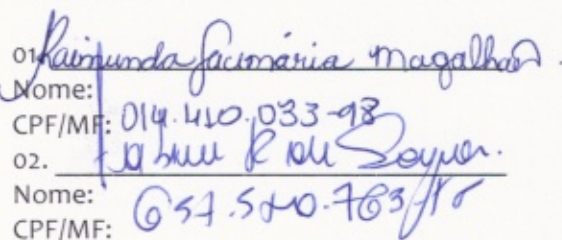 01. Raimunda Jacimária Magalhães.
Nome:
CPF/MF: 014.410.033-98
02.
Nome:
CPF/MF: 657.520.763